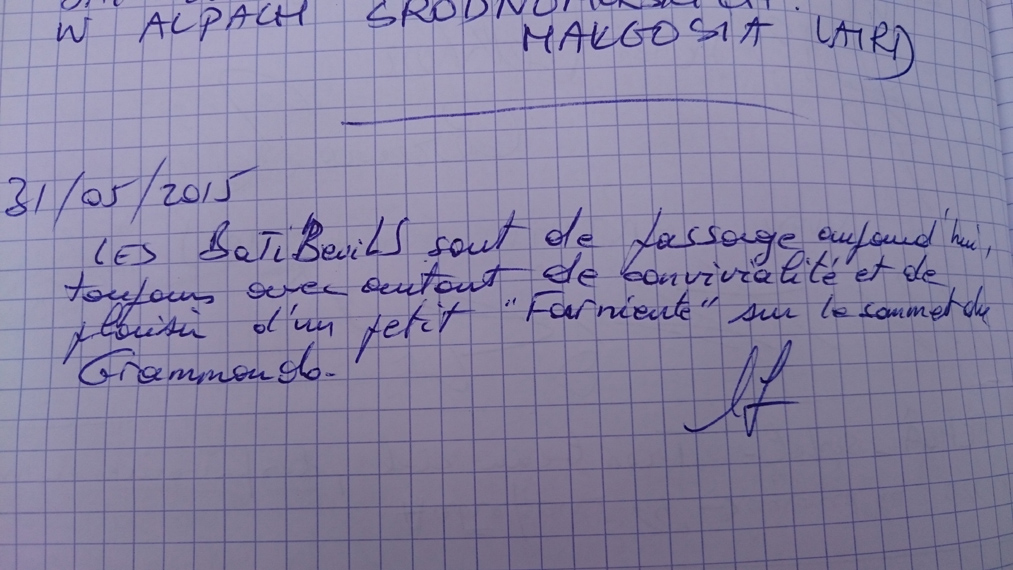 W ALPACH ŚRÓDNOMORSKICH.
MAŁGOSIA
31/05/2015
LES BaTiBeuilS sont de passage aujourd'hui,
toujours avec autant de convivialité et de
plaisir d'un petit "Farniente" sur le sommet du
Grammondo.